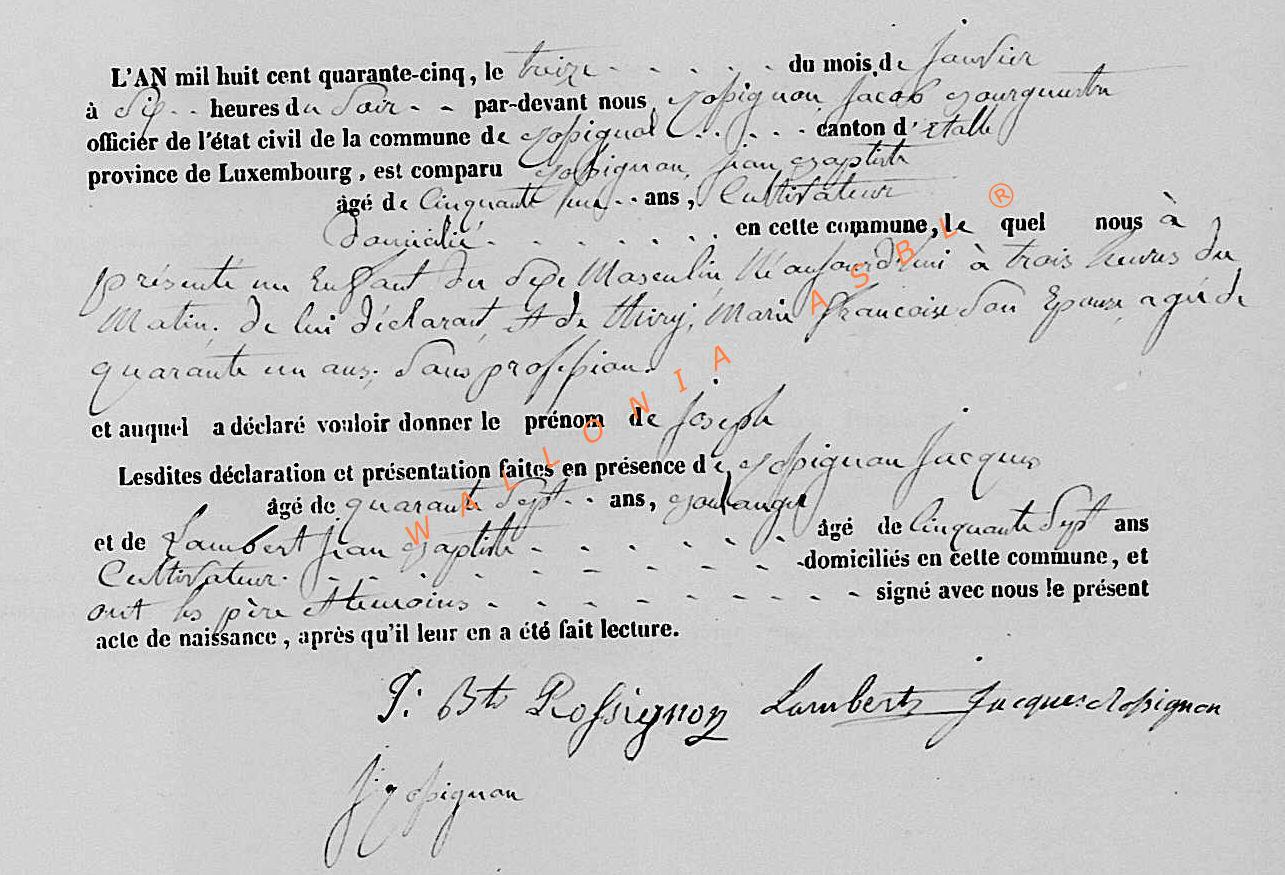 L'AN mil huit cent quarante-cinq, le treize - - - - - du mois de Janvier
à Six - - heures du Soir - - par-devant nous, Rossignon Jacob Bourguestre
officier de l'état civil de la commune de Rossignol - - - - canton d'Etalle
province de Luxembourg, est comparu Rossignon, Jean Baptiste
âgé de Cinquante - - ans, Cultivateur
Domicilié - - - - - - - en cette commune, le quel nous à
présenté un Enfant du Sexe Masculin, Né aujourd'hui à trois heures du
Matin. de lui déclarant, et de Thiry, Marie Francoise Son Epouse, agée de
quarante un ans, Sans profession.
et auquel a déclaré vouloir donner le prénom de Joseph
Lesdites déclaration et présentation faites en présence de Rossignon Jacques
âgé de quarante Sept - - ans, Boulanger
et de Lambert Jean Baptiste - - - - - - - âgé de Cinquante Sept ans
Cultivateur. - - - - - - - - - - - -domiciliés en cette commune, et
ont les père et temoins - - - - - - - - - signé avec nous le présent
acte de naissance, après qu'il leur en a été fait lecture.
J: Bte Rossignon Lambert Jacques Rossignon
J Rossignon
WALLONIA ASBL ®